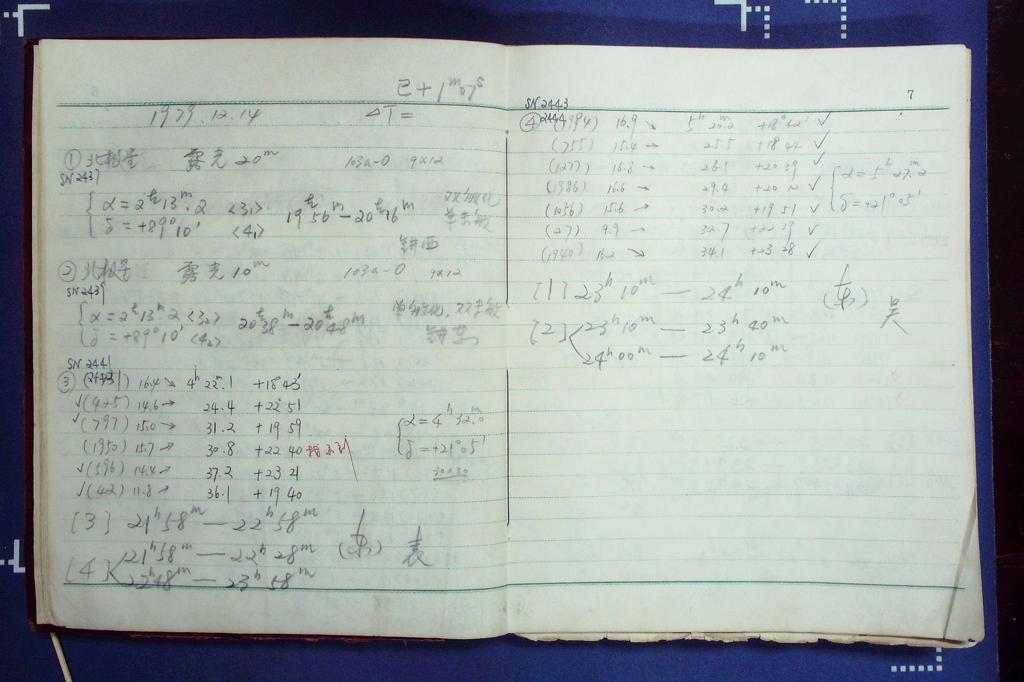 1979.12.14 ΔT= 已+1ᵐ07ˢ
① 北极星 露光20ᵐ 103a-O 9x12
SN2437
α=2ᵗ13ᵐ.2 <3₁> 19 56ᵐ—20 16ᵐ
δ=+89°10' <4₁>
② 北极星 露光10ᵐ 103a-O 9x12
SN2437
α=2 13ᵐ2 <3₂> 20 38ᵐ—20 48ᵐ
δ=+89°10' <4₂>
SN2441
③ 16.4 → 4ʰ 22ᵐ.1 +18 43'
✓(425) 14.6 → 24.4 +22 51
✓(797) 15.0 → 31.2 +19 59
(1950) 15.7 → 30.8 +22 40
✓(596) 14.4 → 37.2 +23 21
✓(42) 11.8 → 36.1 +19 40
α=4ʰ32ᵐ.0
δ=+21°05'
30x30
[3] 21ʰ58ᵐ — 22ʰ58ᵐ
[4] 21ʰ58ᵐ — 22ʰ28ᵐ (东) 表
22ʰ48ᵐ — 23ʰ58ᵐ
7
SN2443
④ 2444 (1994) 16.9 ↘ 5ʰ 20.2 +18°42' ✓
(755) 15.4 → 25.5 +18 44 ✓
(1277) 16.8 → 26.1 +20 39 ✓
(1986) 16.6 → 29.4 +20 12 ✓
(1056) 15.6 → 30.2 +19 51 ✓
(27) 9.9 → 32.7 +22 39 ✓
(1940) 16.2 → 34.1 +23 28 ✓
α=5ʰ27ᵐ.2
δ=+21°05'
[1] 23ʰ10ᵐ — 24ʰ10ᵐ (东) 吴
[2] 23ʰ10ᵐ — 23ʰ40ᵐ
24ʰ00ᵐ — 24ʰ10ᵐ